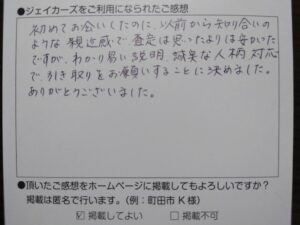 ●ジェイカーズをご利用になられたご感想
初めてお会いしたのに、以前から知り合いの
ような親近感で、査定は思ったよりは安かった
ですが、わかり易い説明、誠実な人柄、対応
で、引き取りをお願いすることに決めました。
ありがとうございました。
●頂いたご感想をホームページに掲載してもよろしいですか？
掲載は匿名で行います。（例：町田市 K 様）
☑ 掲載してよい　☐ 掲載不可